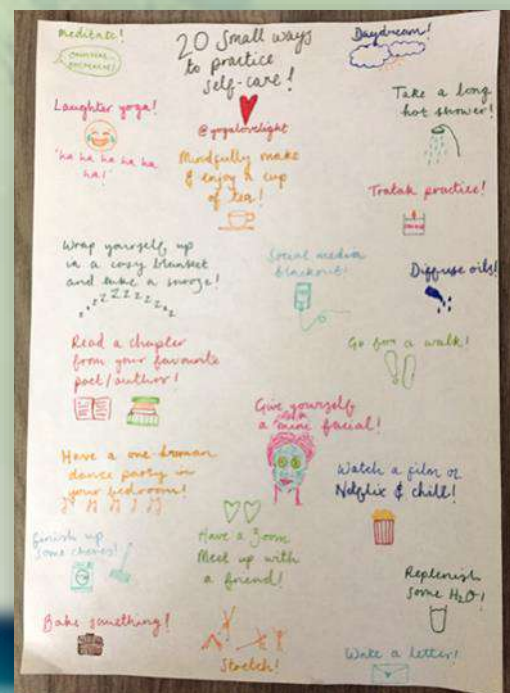 Meditate!
20 Small ways
to practice
self-care!
@yogalovelight
Daydream!
Laughter yoga!
"ha ha ha ha ha
ha!"
Mindfully make
& enjoy a cup
of tea!
Take a long
hot shower!
Tratak practice!
Wrap yourself up
in a cosy blanket
and take a snooze!
zzzZZZZzzzz
Social media
blackout!
Diffuse oils!
Read a chapter
from your favourite
poet/author!
Go for a walk!
Give yourself
a mini facial!
Have a one human
dance party in
your bedroom!
Watch a film or
Netflix & chill!
Finish up
some chores!
Have a Zoom
Meet up with
a friend!
Replenish
some H2O!
Bake something!
Stretch!
Write a letter!